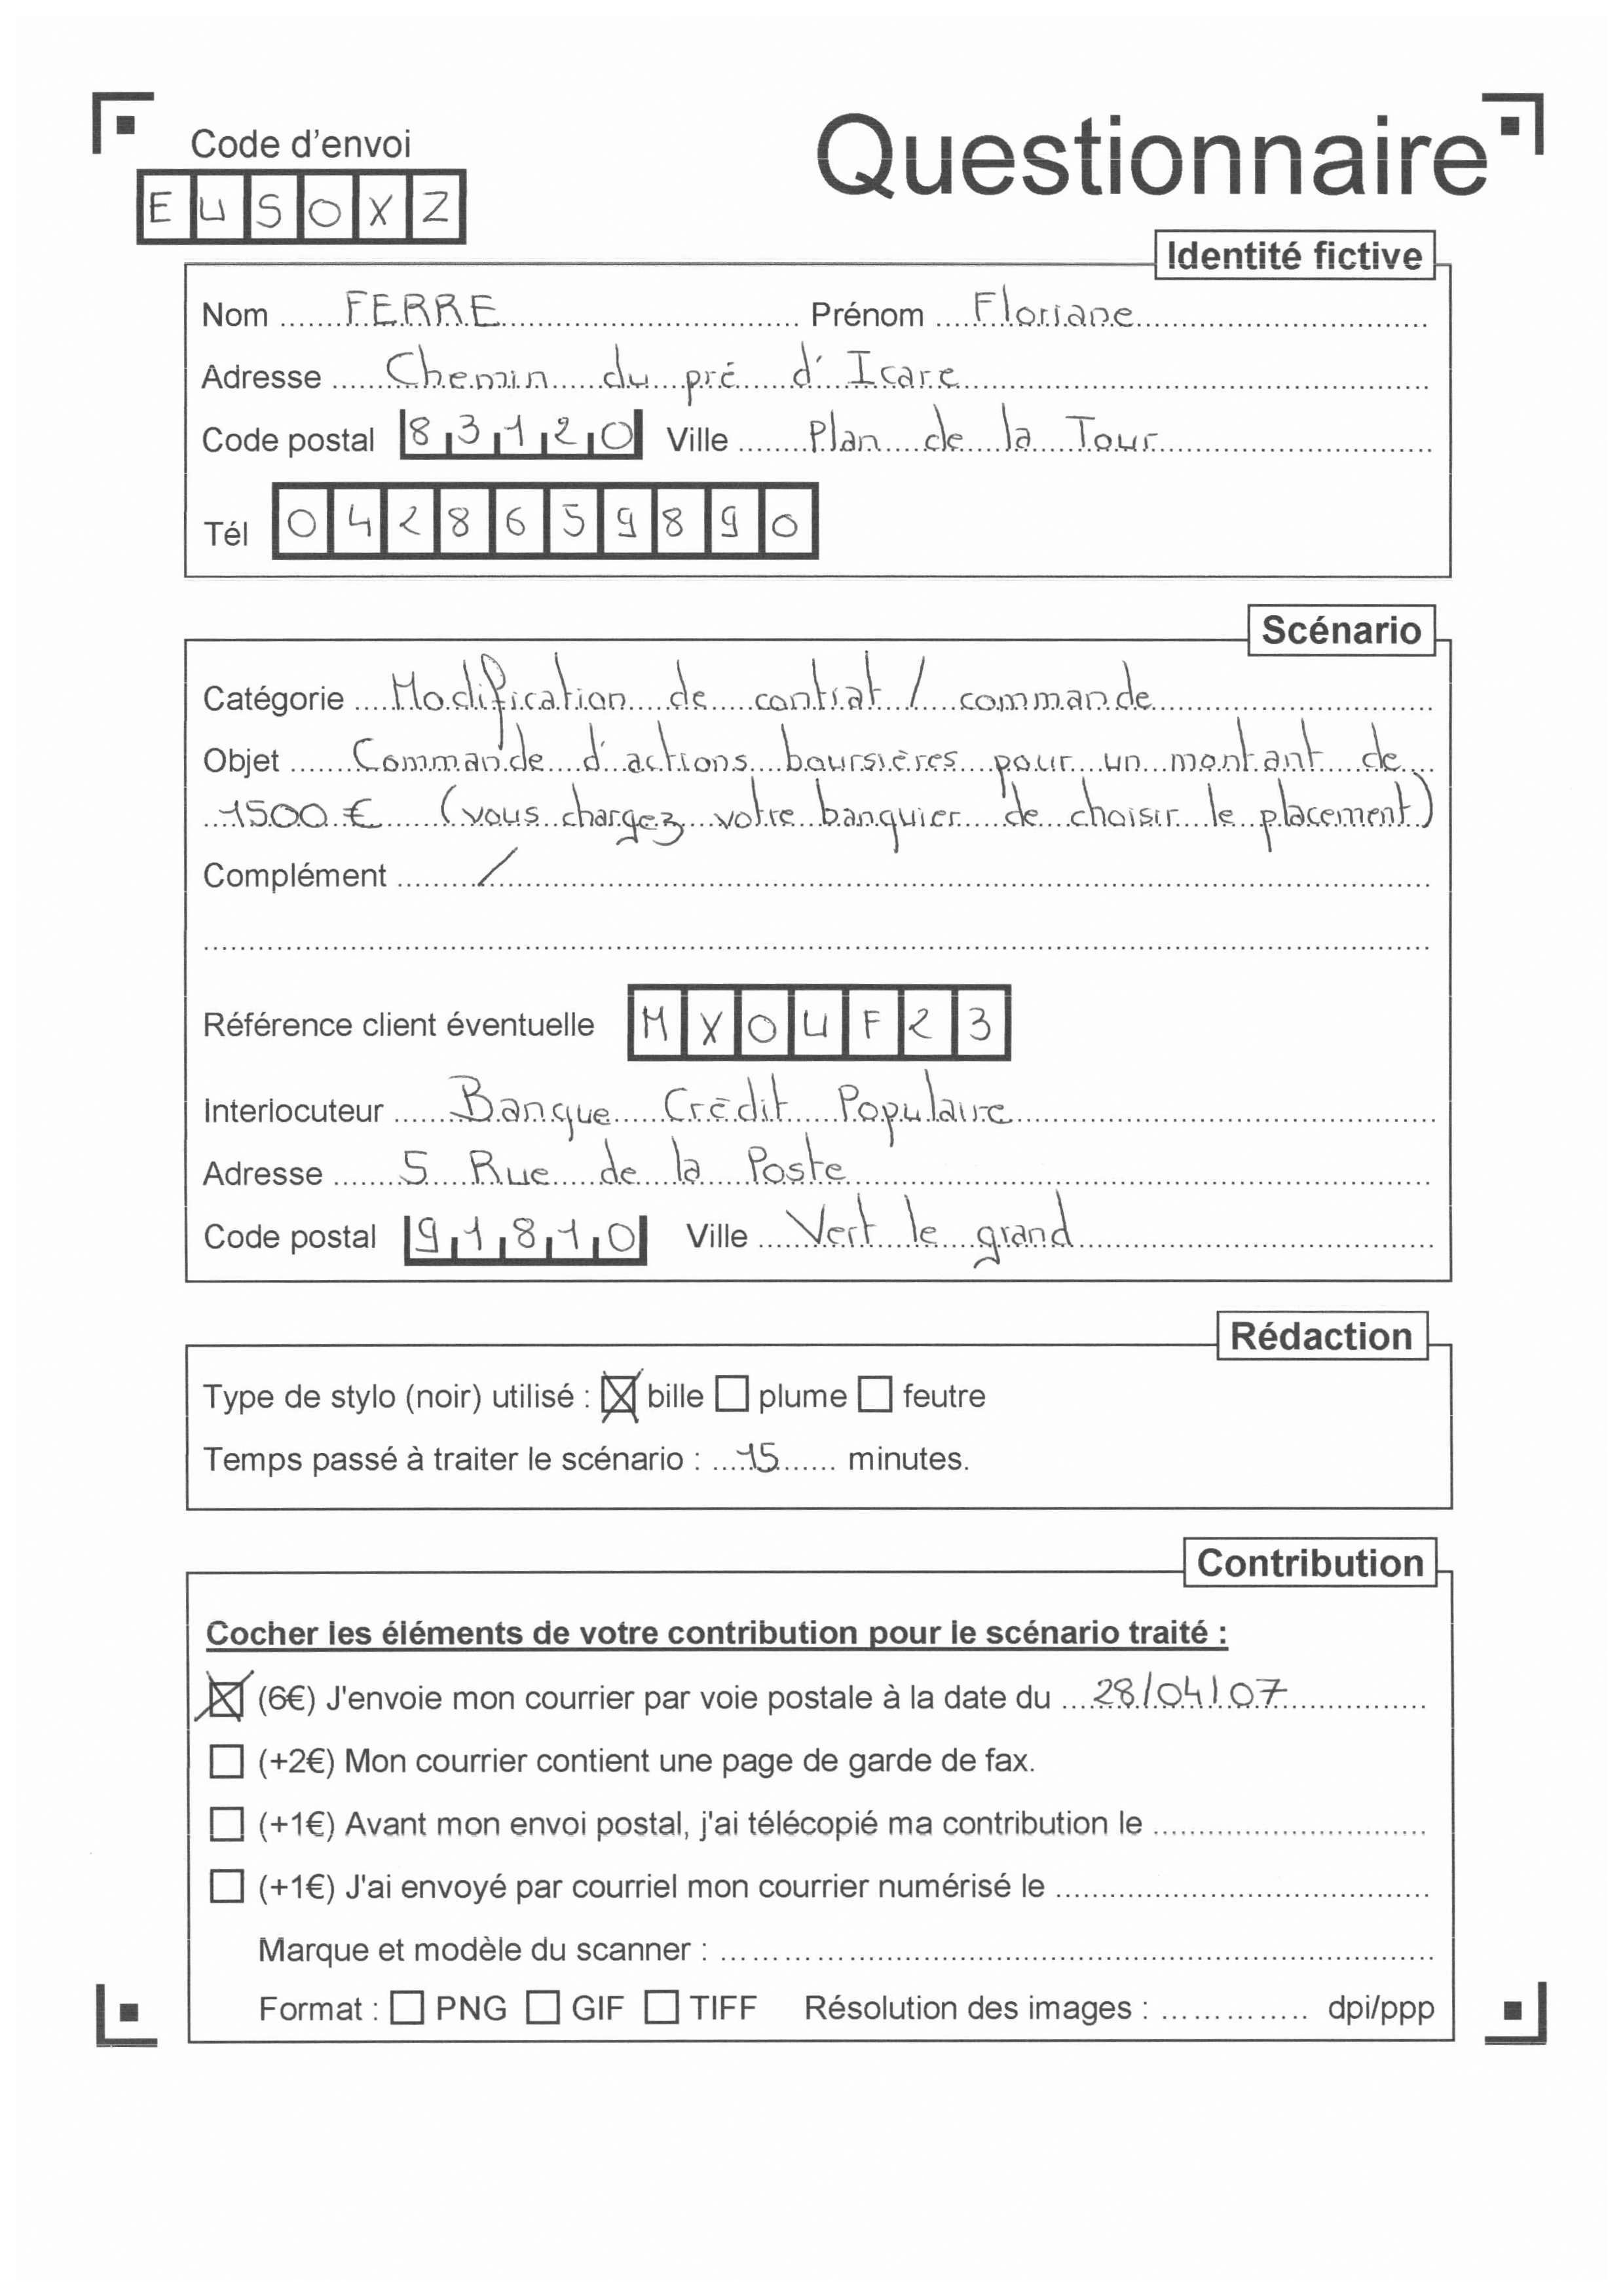 Code d'envoi
Questionnaire
E U S O X Z
Identité fictive
Nom FERRE Prénom Floriane
Adresse Chemin du pré d'Icare
Code postal 83120 Ville Plan de la Tour
Tél 0428659890
Scénario
Catégorie Modification de contrat / commande
Objet Commande d'actions boursières pour un montant de
1500 € (vous chargez votre banquier de choisir le placement)
Complément /
Référence client éventuelle M X O U F 2 3
Interlocuteur Banque Crédit Populaire
Adresse 5 Rue de la Poste
Code postal 91810 Ville Vert le grand
Rédaction
Type de stylo (noir) utilisé : ☒ bille ☐ plume ☐ feutre
Temps passé à traiter le scénario : 15 minutes.
Contribution
Cocher les éléments de votre contribution pour le scénario traité :
☒ (6€) J'envoie mon courrier par voie postale à la date du 28/04/07
☐ (+2€) Mon courrier contient une page de garde de fax.
☐ (+1€) Avant mon envoi postal, j'ai télécopié ma contribution le
☐ (+1€) J'ai envoyé par courriel mon courrier numérisé le
Marque et modèle du scanner :
Format : ☐ PNG ☐ GIF ☐ TIFF Résolution des images : dpi/ppp